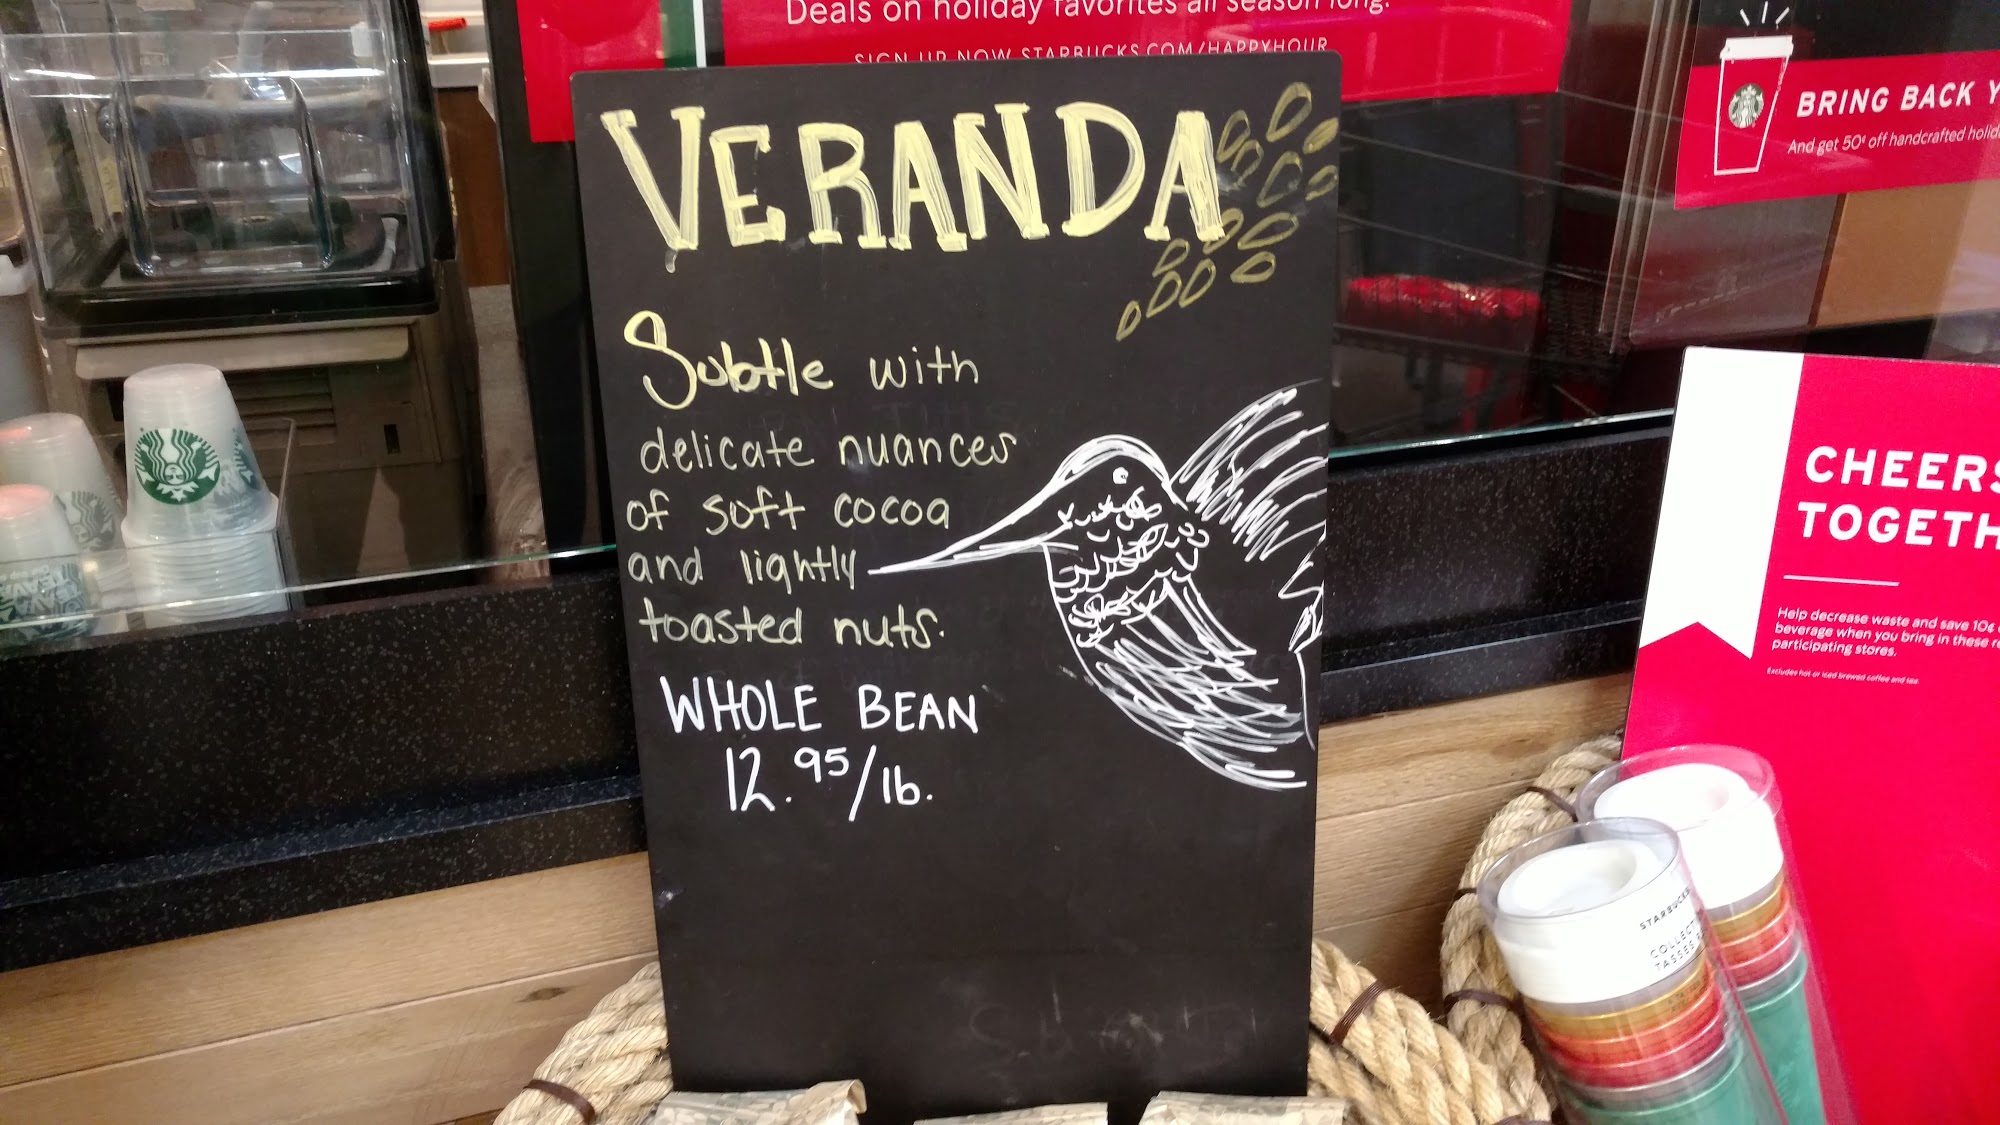 Deals on holiday favorites all season long.
SIGN UP NOW STARBUCKS.COM/HAPPYHOUR
VERANDA
Subtle with
delicate nuances
of soft cocoa
and lightly
toasted nuts.
WHOLE BEAN
12.95/lb.
BRING BACK
And get 50¢ off handcrafted
CHEERS
TOGETH
Help decrease waste and save 10¢
beverage when you bring in these
participating stores.
Excludes hot or iced brewed coffee and tea
STARBUCKS
COLLECT
TASSES